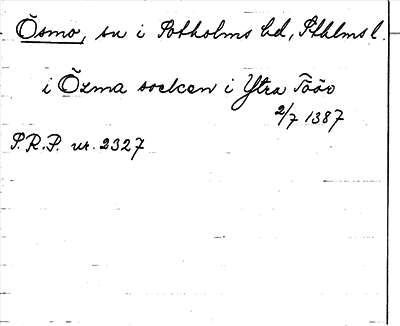 Ösmo, sn i Sotholms hd, Sthlms l.
i Özma socken i Ytra Töör
2/7 1387
S.R.P. nr. 2327